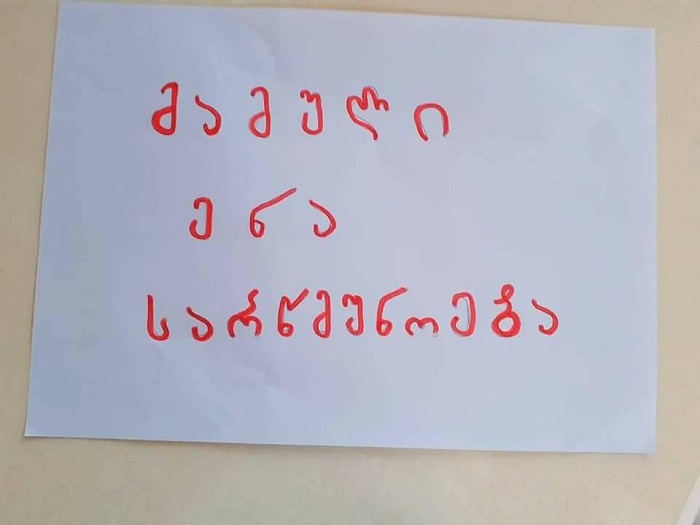 მამული
ენა
სარწმუნოება